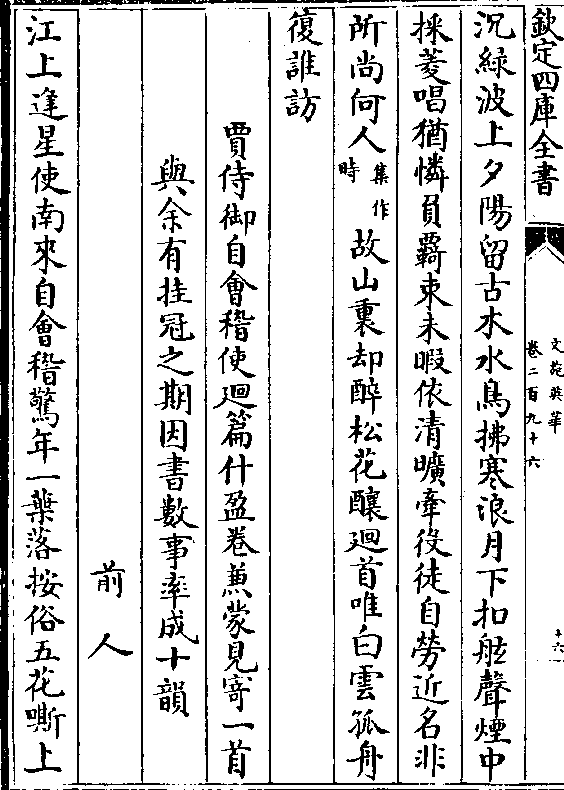 欽定四庫全書
文苑英華
卷二百九十六
十六
沉緑波上夕陽留古木水鳥拂寒浪月下扣舷聲煙中
採菱唱猶憐負羇束未暇依清曠牽役徒自勞近名非
所尚何人集作時故山裏却醉松花釀廻首唯白雲孤舟
復誰訪
賈侍御自㑹稽使廻篇什盈卷蒹蒙見寄一首
與余有挂冠之期因書數事率成十韻
前人
江上逢星使南來自㑹稽驚年一葉落按俗五花嘶上